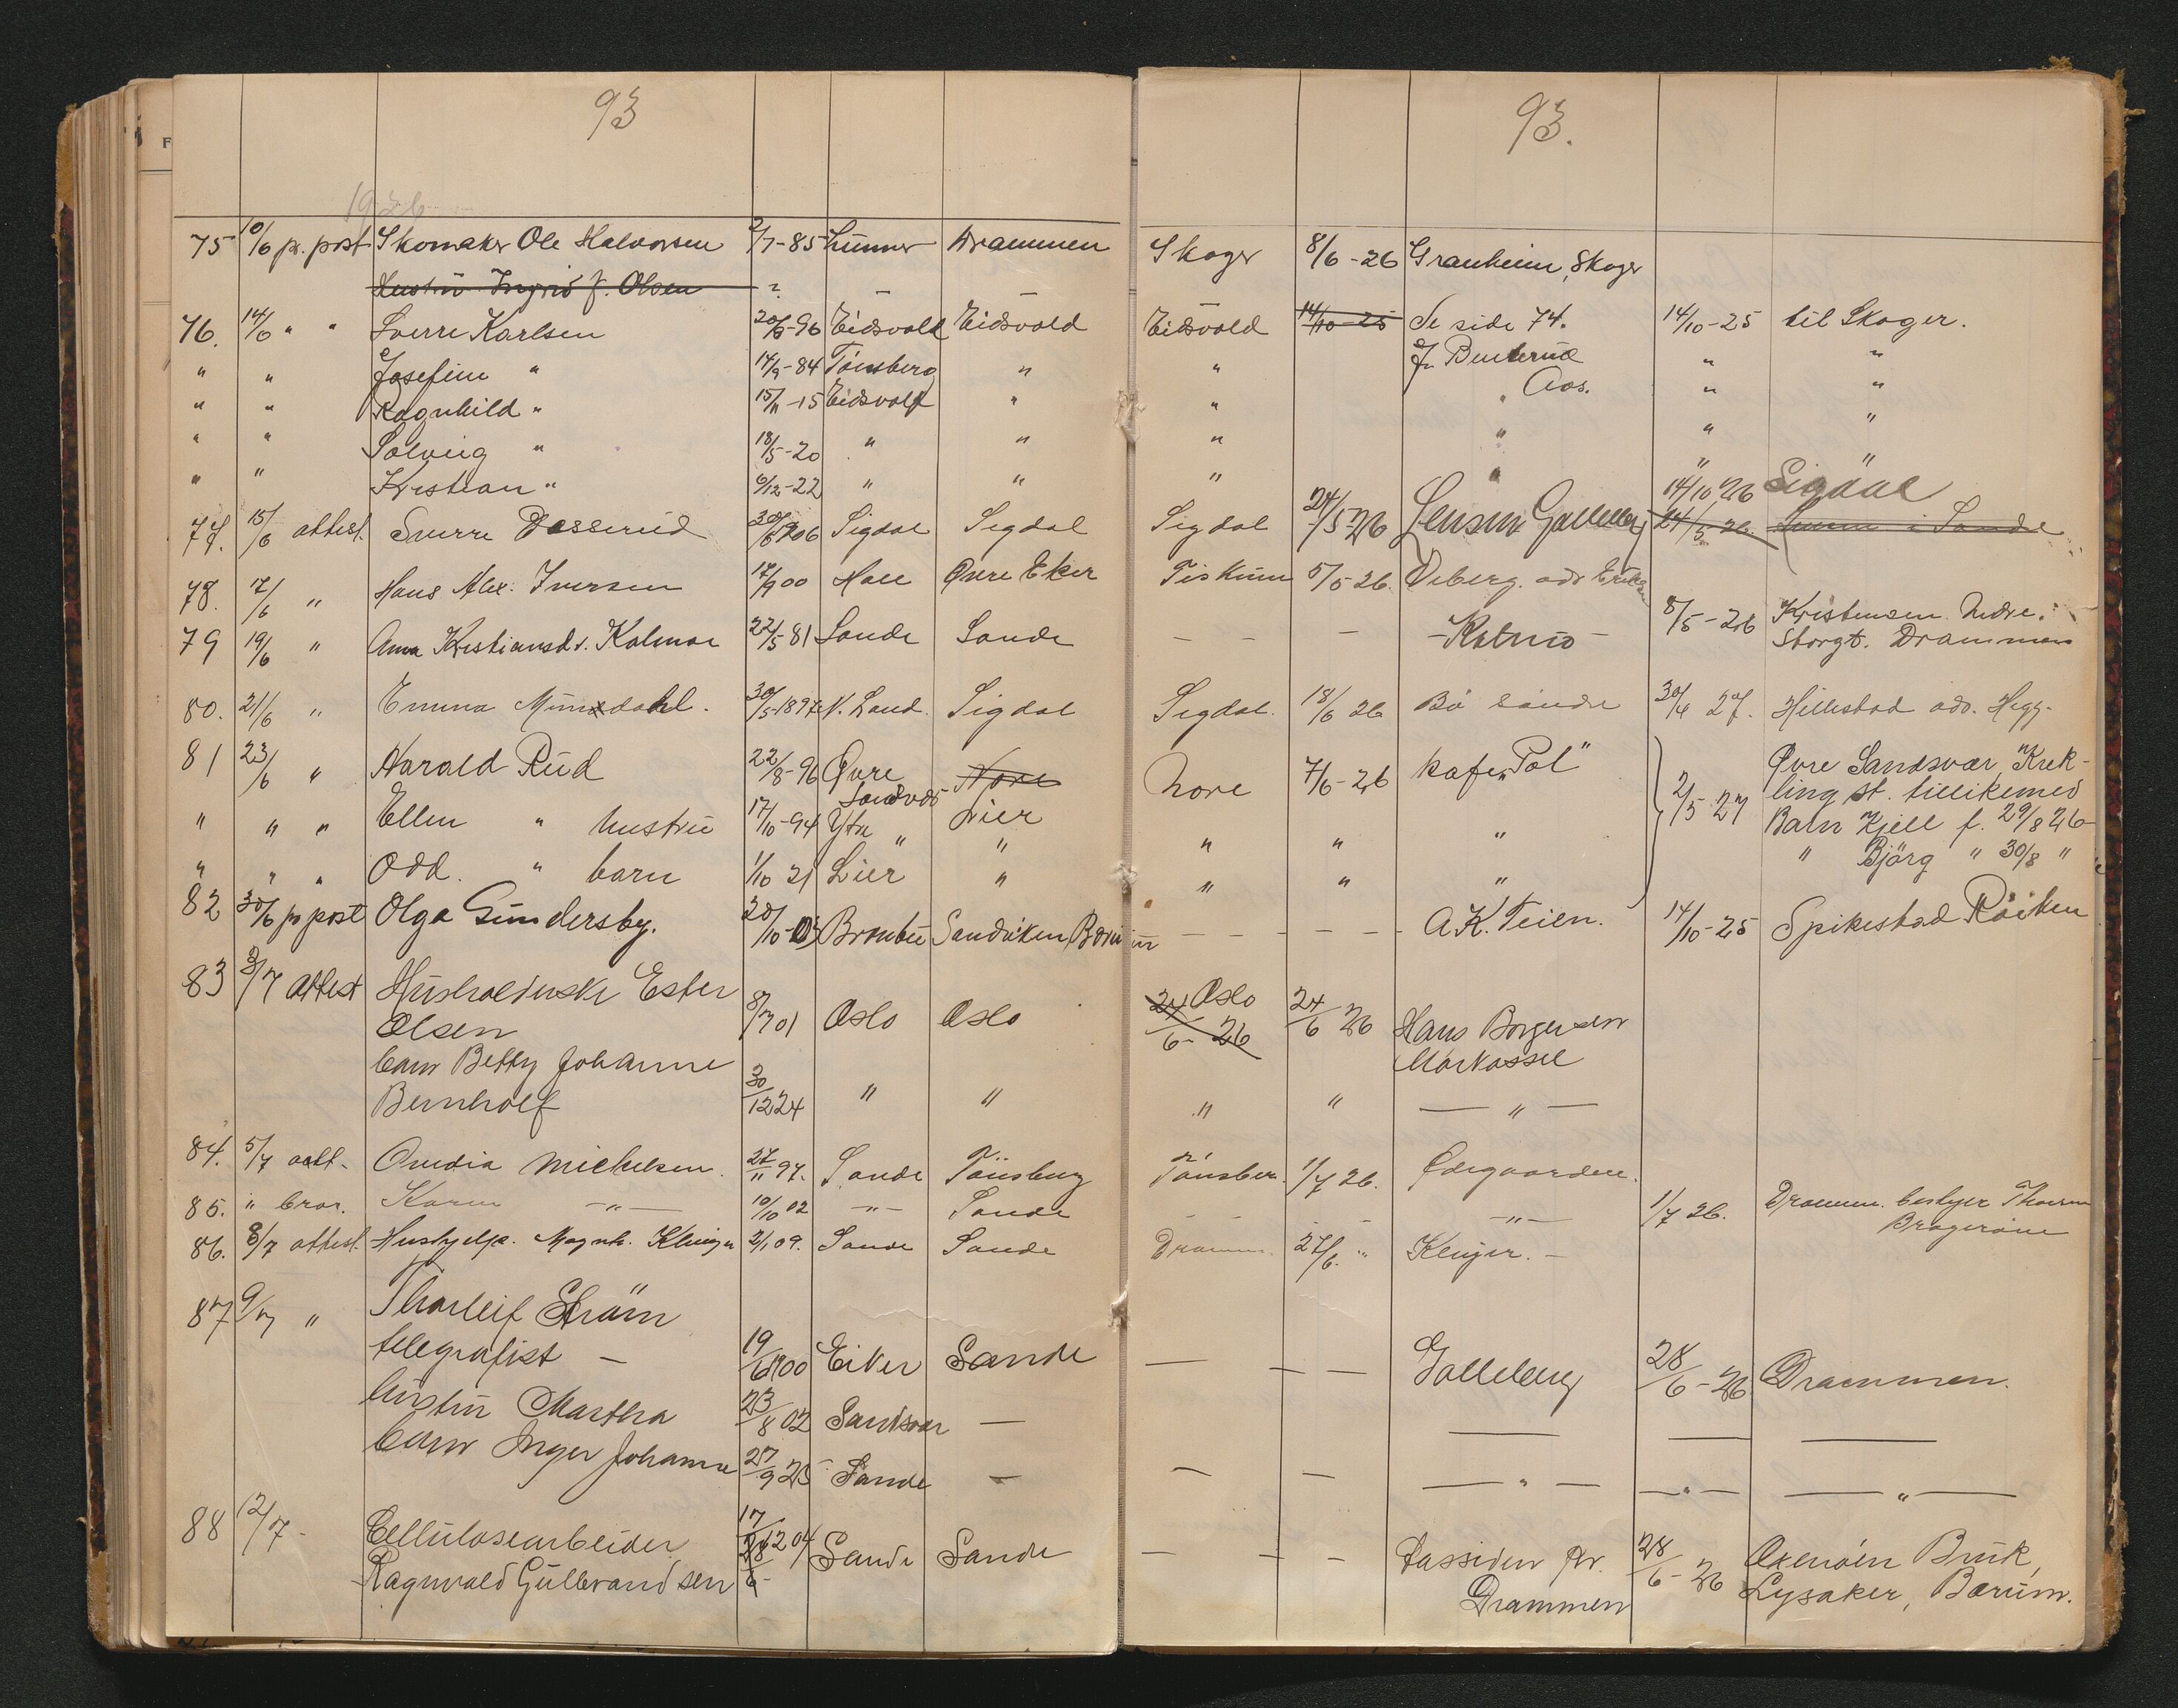 93
1926
75 10/6 pr. post Skomaker Ole Halvorsen 2/7-85 Lunner Drammen
Hustru Ingrid f. Olsen ? — —
76. 14/6 " " Sverre Karlsen 20/8-96 Eidsvold Eidsvold
" " Josefine " 14/9-84 Tönsberg "
" " Ragnhild " 15/11-15 Eidsvold "
" " Solveig " 18/5-20 " "
" " Kristian " 6/12-22 " "
77. 15/6 attest. Sverre Sigdal Sigdal
78. 17/6 " Hans Alex. Iversen 17/9 00 Øvre Eker
79 19/6 " Anna Kristiansdr. Kolmoe 22/5 81 Sande Sande
80. 21/6 " Emma 30/5-1897 N. Land. Sigdal
81 23/6 " Harald Rud 22/8-96 Øvre Nore
Sandsvær
" " " Ellen " hustru 17/10-94 Ytre " Lier
"
" " " Odd. " barn 1/10 21 Lier "
82 30/6 pr post Olga Gundersby. 20/10-03 Brandbu Sandviken, Bærum
83 3/7 attest Husholderske Ester
Olsen 8/7 01 Oslo Oslo
barn Betty Johanne
Bernholf 30/12 24 " "
84. 5/7 att. Ovedia Michelsen. 27/11 97. Sande Tönsberg
85. " Karen —"— 10/10 02 —"— Sande
86. 8/7 attest. Hushjelp. Magnh. Klinger 2/1 09. Sande Sande
87 9/7 " Thorleif Ström
telegrafist — 19/6 1900 Eiker Sande
hustru Martha 23/8 02 Sandsvær —
barn Inger Johanne 27/9 25 Sande —
88 12/7- Cellulosearbeider 17/12 04 Sande Sande
Ragnvald Gulbrandsen 28/6-
93.
Skoger 8/6-26 Granheim, Skoger
Eidsvold 14/10-25 Se side 74. 14/10-25 til Skoger.
" J. " "
" " Aas. " "
" " " "
" " " "
14/10 26 Sigdal
Sigdal 24/5-26 Jensen Galleberg 24/5-26 i Sande
Fiskum 5/5-26. Viberg.
— — — — Kolmo — 8/5-26 Kristensen Nedre.
Storgt. Drammen
Sigdal. 18/6 26 Bö Sande 30/4 27. Hillestad adr.
Nore 7/6-26 kafe "Pol" 2/5 27 Øvre Sandsvær, "Krek-
ling st. tillikemed
" " " Barn Kjell f. 29/8 26
" " " " Björg " 30/8 "
— — — — — A.K. Teien. 14/10-25 Spikestad Röiken
Oslo
24/6-26 24/6 26 Hans Borgersen
" " — " —
Tönsberg. 1/7 26. Ødegaarden.
— — — —"— 1/7 26. Dramm. bestyrer
Bragerøene
Dramm. 27/6. " Klinger. —
— — — Galleberg 28/6-26 Drammen.
— — —
— — — " — — " — — " —
— — — Tassiden pr. 28/6-26 Oxenöen Bruk,
Drammen Lysaker, Bærum.